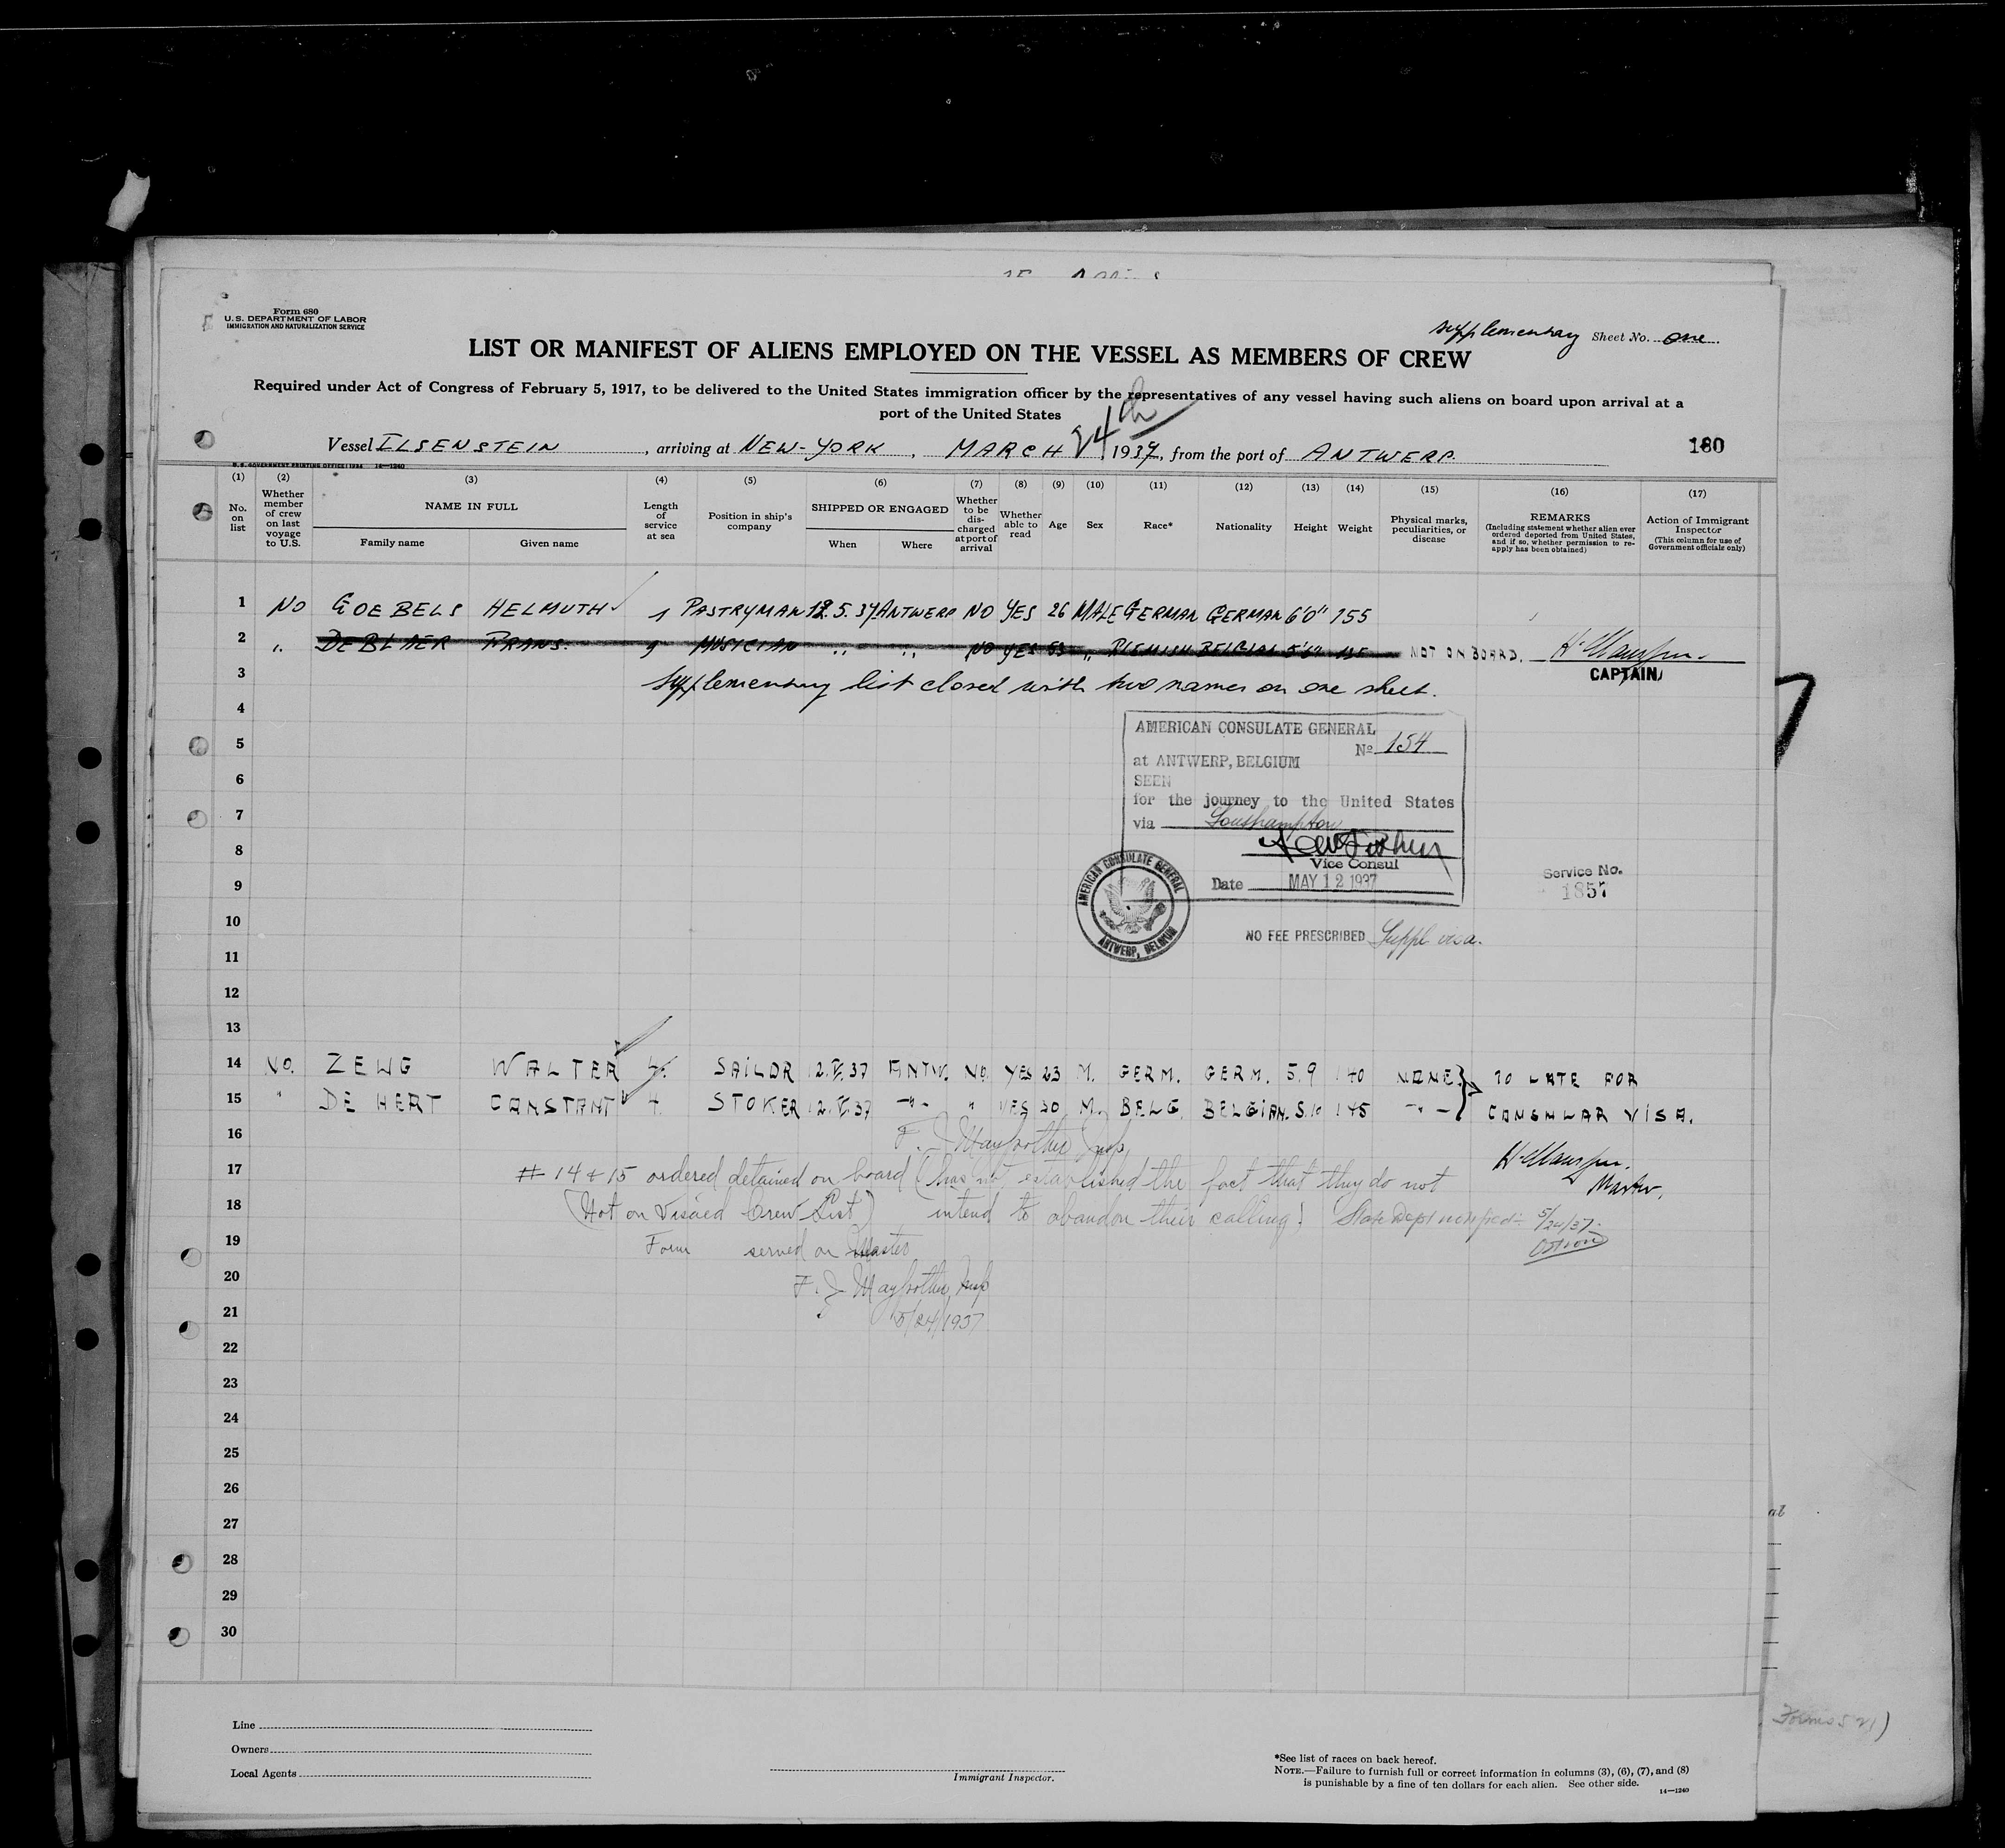 Form 680
U.S. DEPARTMENT OF LABOR
IMMIGRATION AND NATURALIZATION SERVICE
supplementary Sheet No. one
LIST OR MANIFEST OF ALIENS EMPLOYED ON THE VESSEL AS MEMBERS OF CREW
Required under Act of Congress of February 5, 1917, to be delivered to the United States immigration officer by the representatives of any vessel having such aliens on board upon arrival at a
port of the United States
Vessel ILSENSTEIN, arriving at NEW-YORK, MARCH 24th, 1937, from the port of ANTWERP
180
U.S. GOVERNMENT PRINTING OFFICE: 1934 14—1240
(1) (2) (3) (4) (5) (6) (7) (8) (9) (10) (11) (12) (13) (14) (15) (16) (17)
No. on list
Whether member of crew on last voyage to U.S.
NAME IN FULL
Family name Given name
Length of service at sea
Position in ship's company
SHIPPED OR ENGAGED
When Where
Whether to be discharged at port of arrival
Whether able to read
Age
Sex
Race*
Nationality
Height
Weight
Physical marks, peculiarities, or disease
REMARKS
(Including statement whether alien ever ordered deported from United States, and if so, whether permission to reapply has been obtained)
Action of Immigrant Inspector
(This column for use of Government officials only)
1 NO GOEBELS HELMUTH 1 PASTRYMAN 12.5.37 ANTWERP NO YES 26 MALE GERMAN GERMAN 6'0" 155
2 " DE BLAER FRANS. 9 MUSICIAN " " NO YES 53 " FLEMISH BELGIAN 5'6" 135 NOT ON BOARD.
CAPTAIN
3 supplementary list closed with two names on one sheet.
4
5
6
7
8
9
10
11
12
13
AMERICAN CONSULATE GENERAL
No 154
at ANTWERP, BELGIUM
SEEN
for the journey to the United States
via Southampton
Vice Consul
Date MAY 12 1937
AMERICAN CONSULATE GENERAL
ANTWERP, BELGIUM
Service No.
1857
NO FEE PRESCRIBED Suppl visa.
14 NO. ZEWG WALTER 4. SAILOR 12.V.37 ANTW. NO. YES 23 M. GERM. GERM. 5.9 140 NONE } TO LATE FOR
15 " DE HERT CONSTANT 4. STOKER 12.V.37 -"- " YES 30 M. BELG. BELGIAN. 5.10 145 -"- CONSULAR VISA.
16 F. J. Maybrother Insp
Master.
17 # 14 & 15 ordered detained on board (has not established the fact that they do not
18 (Not on Visaed Crew List) intend to abandon their calling! State Dept notified 5/24/37
19 Form served on Master
20 F. J. Maybrother Insp
21 5/24/1937
22
23
24
25
26
27
28
29
30
Line
Owners
Local Agents
Immigrant Inspector.
*See list of races on back hereof.
NOTE.—Failure to furnish full or correct information in columns (3), (6), (7), and (8)
is punishable by a fine of ten dollars for each alien. See other side.
14—1240
Forms 521)